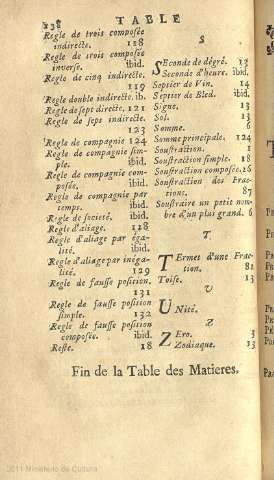 238 TABLE
Regle de trois composée
indirecte. 118
Regle de trois composée
inverse. ibid.
Regle de cinq indirecte.
119
Regle double indirecte. ib.
Regle de sept directe. 121
Regle de sept indirecte.
123
Regle de compagnie 124
Regle de compagnie sim-
ple. ibid.
Regle de compagnie com-
posée. ibid.
Regle de compagnie par
temps. ibid.
Regle de societé. ibid.
Regle d'aliage. 128
Regle d'aliage par éga-
lité. ibid.
Regle d'aliage par inéga-
lité. 129
Regle de fausse position.
131
Regle de fausse position
simple. 132
Regle de fausse position
composée. ibid.
Reste. 18
S
SEconde de dégré. 12
Seconde d'heure. ibid.
Septier de Vin. 14
Septier de Bled. ibid.
Signe. 13
Sol. 13
Somme. 6
Somme principale. 124
Soustraction. 1
Soustraction simple. 18
Soustraction composée. 26
Soustraction des Frac-
tions. 87
Soustraire un petit nom-
bre d'un plus grand. 6
T
TErmes d'une Frac-
tion. 82
Toise. 13
U
UNité.
Z
ZEro. 3
Zodiaque. 13
Fin de la Table des Matieres.
2011 Ministerio de Cultura